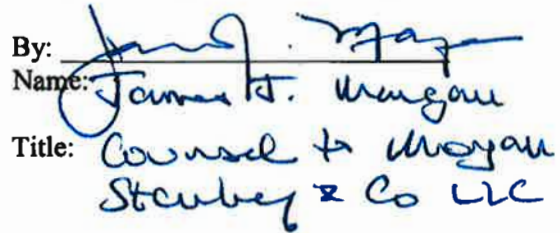 By:
Name: James J. Morgan
Title: Counsel to Morgan
& Co LLC